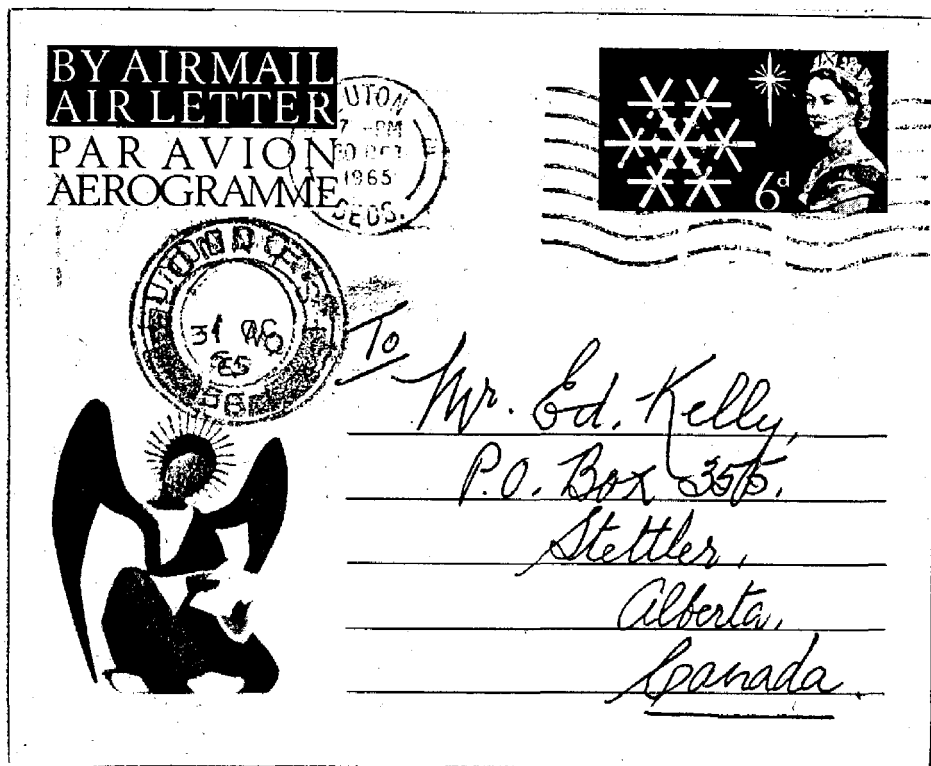 BY AIRMAIL
AIR LETTER
PAR AVION
AEROGRAMME
LUTON
7 PM
30 OCT
1965
BEDS.
6d
31
65
To
Mr. Ed. Kelly,
P.O. Box 355.
Stettler,
Alberta,
Canada.